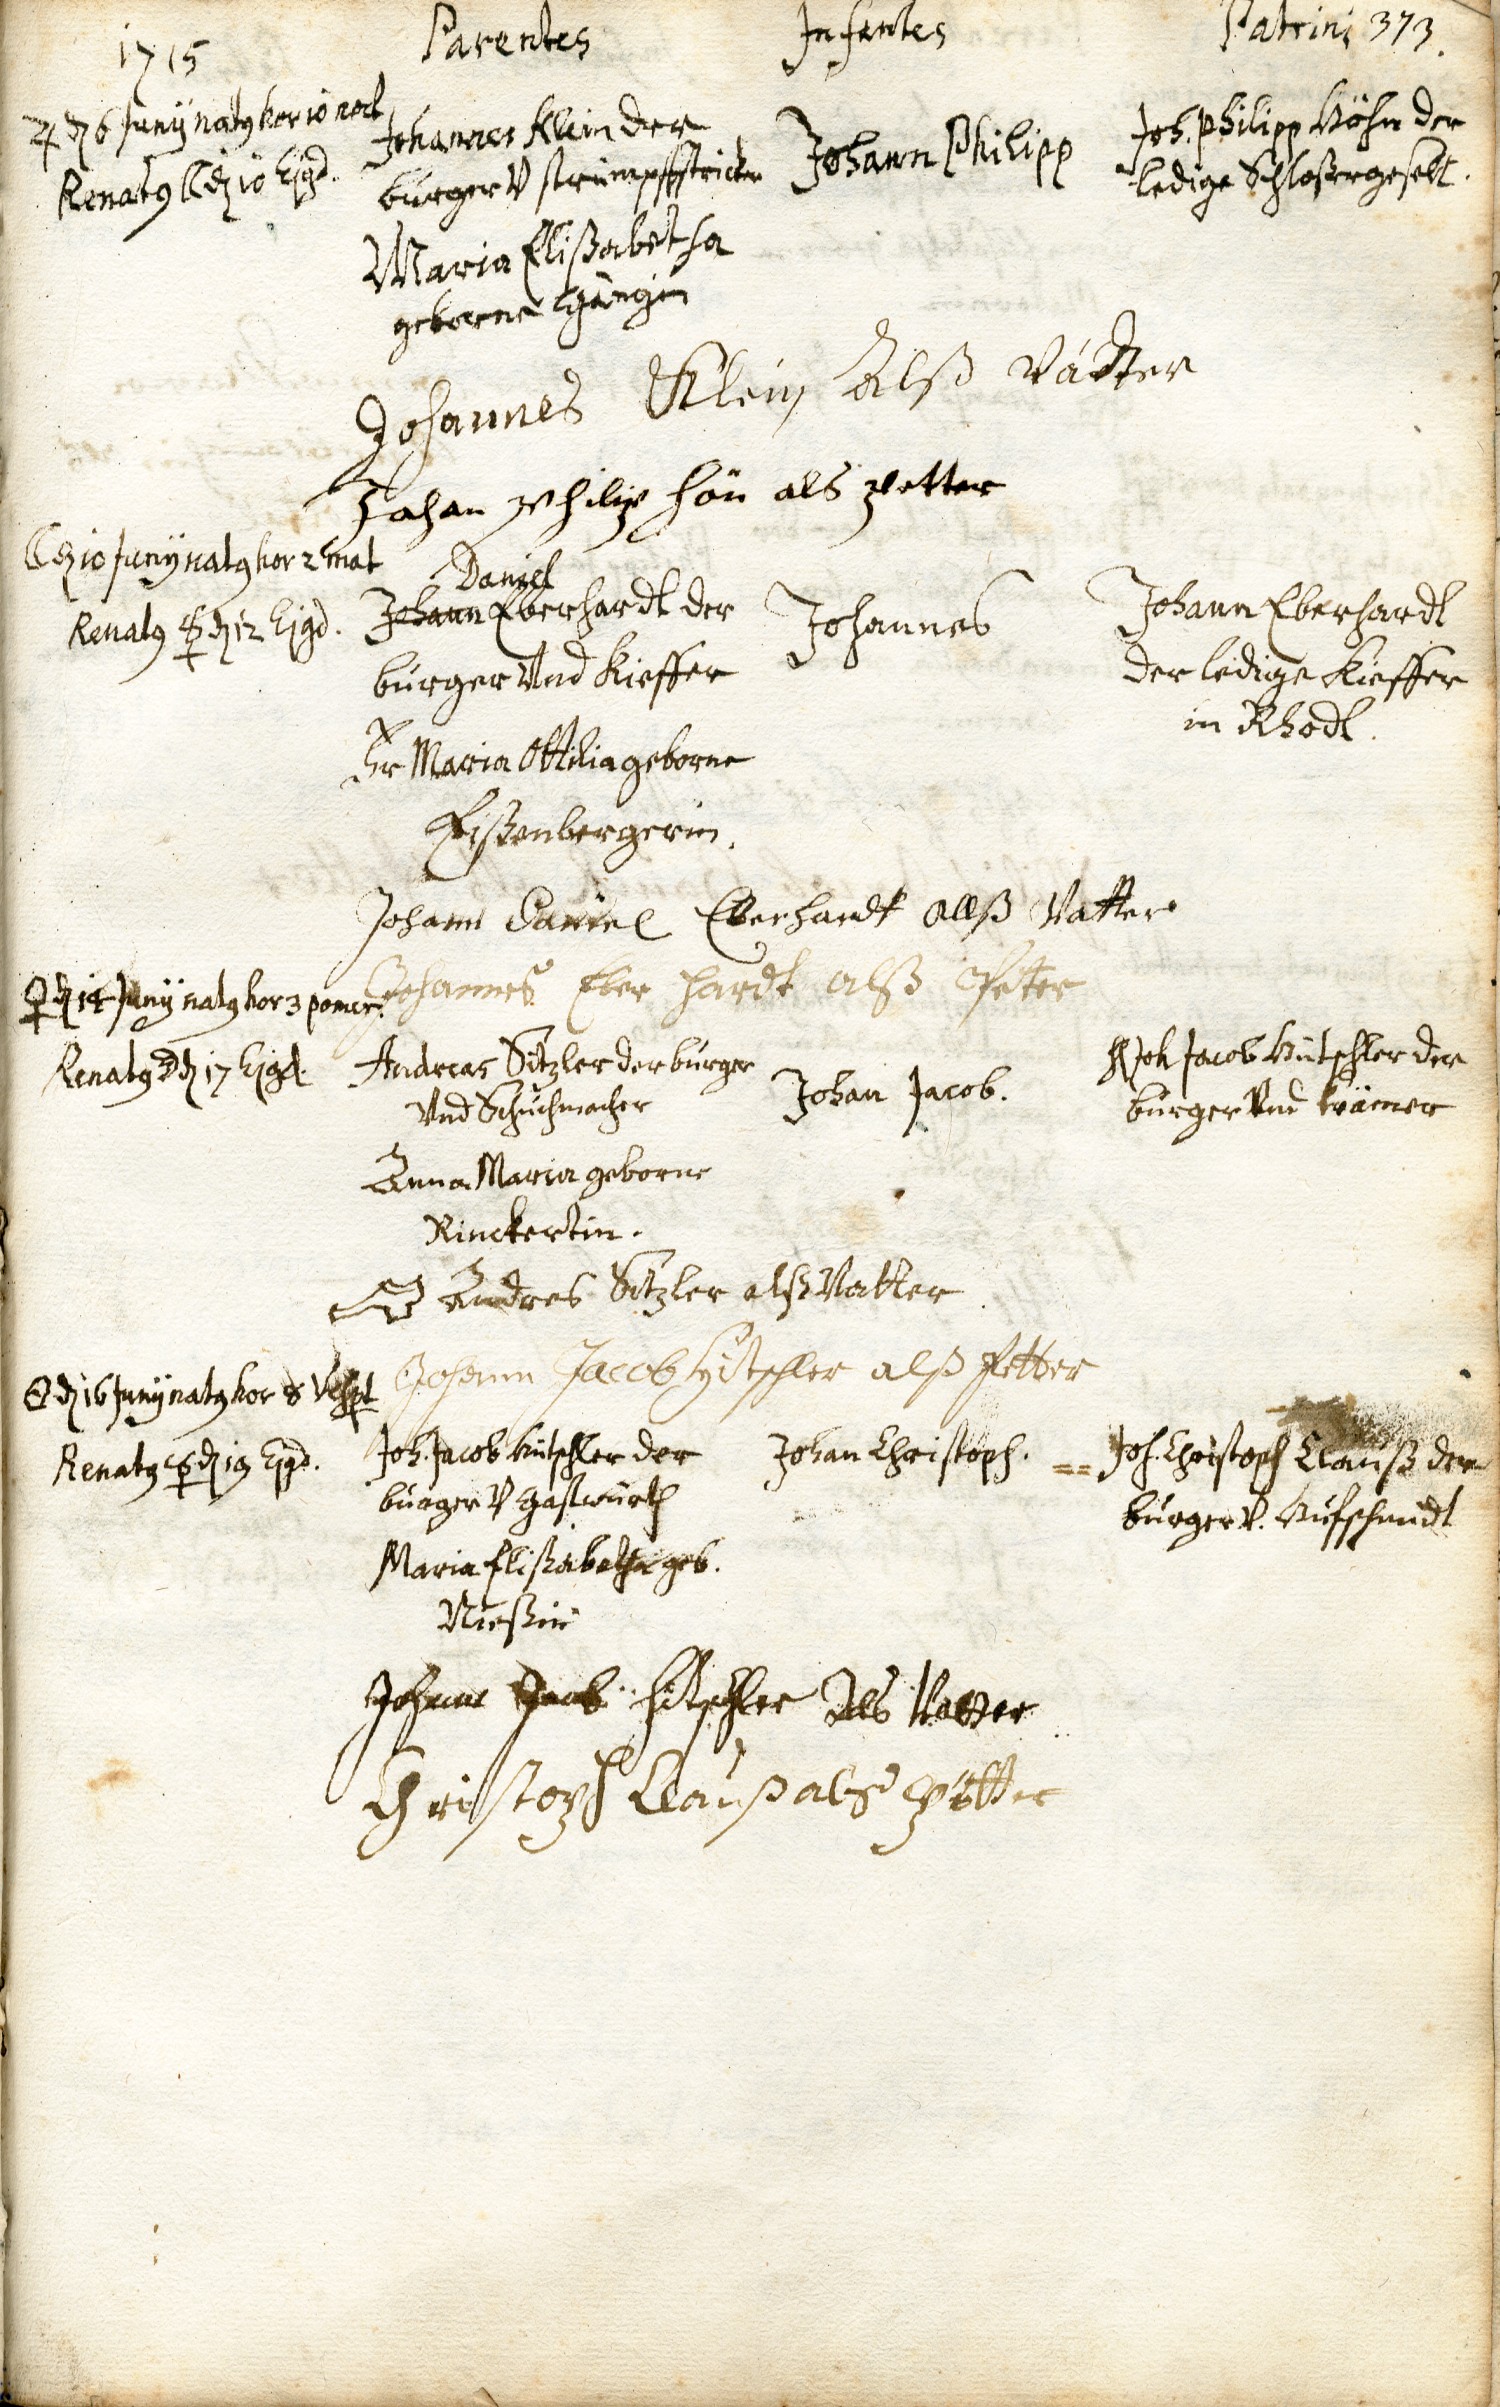 1715
Parentes
Infantes
Patrini 373.
♃ d 6 Junÿ natg hor 10 noct
Renatg ☾ d 10 Ejgd.
Johannes Klein der
burger V strümpffstricker
Maria Elisßabetha
geborne
Johann Philipp
Joh. Philipp Höhn der
ledige Schloßergesell.
Johannes Klein Alß Vatter
Johan Philip Hön als Petter
☾ d 10 Junÿ natg hor 2 mat
Renatg ☿ d 12 Ejgd.
Daniel
Johann Eberhardt der
burger Und Kieffer
Maria Ottilia geborne
Eißenbergerin.
Johannes
Johann Eberhardt
der ledige Kieffer
in Rhodt.
Johann Daniel Eberhardt Allß Vatter
Johannes Eber hardt alß Peter
♀ d 14 Junÿ natg hor 3 pomer.
Renatg ☽ d 17 Ejgd.
Andreas Sitzler der burger
Und Schuhmacher
Anna Maria geborne
Rinckertin.
Johan Jacob.
Joh Jacob Hütschler der
burger Und Krämer
Andres Sitzler alß Vatter
Johann Jacob Hitschler alß Petter
☉ d 16 Junÿ natg hor 8 Vesp
Renatg ☿ d 19 Ejgd.
Joh. Jacob Hütschler der
burger V Gastwürth
Maria Elißabetha geb.
Nießin
Johan Christoph.
Joh. Christoph Clauß der
burger V. Hufschmidt
Johann Jacob Hitschler Als Vatter
Christoph Clauß als Pötter